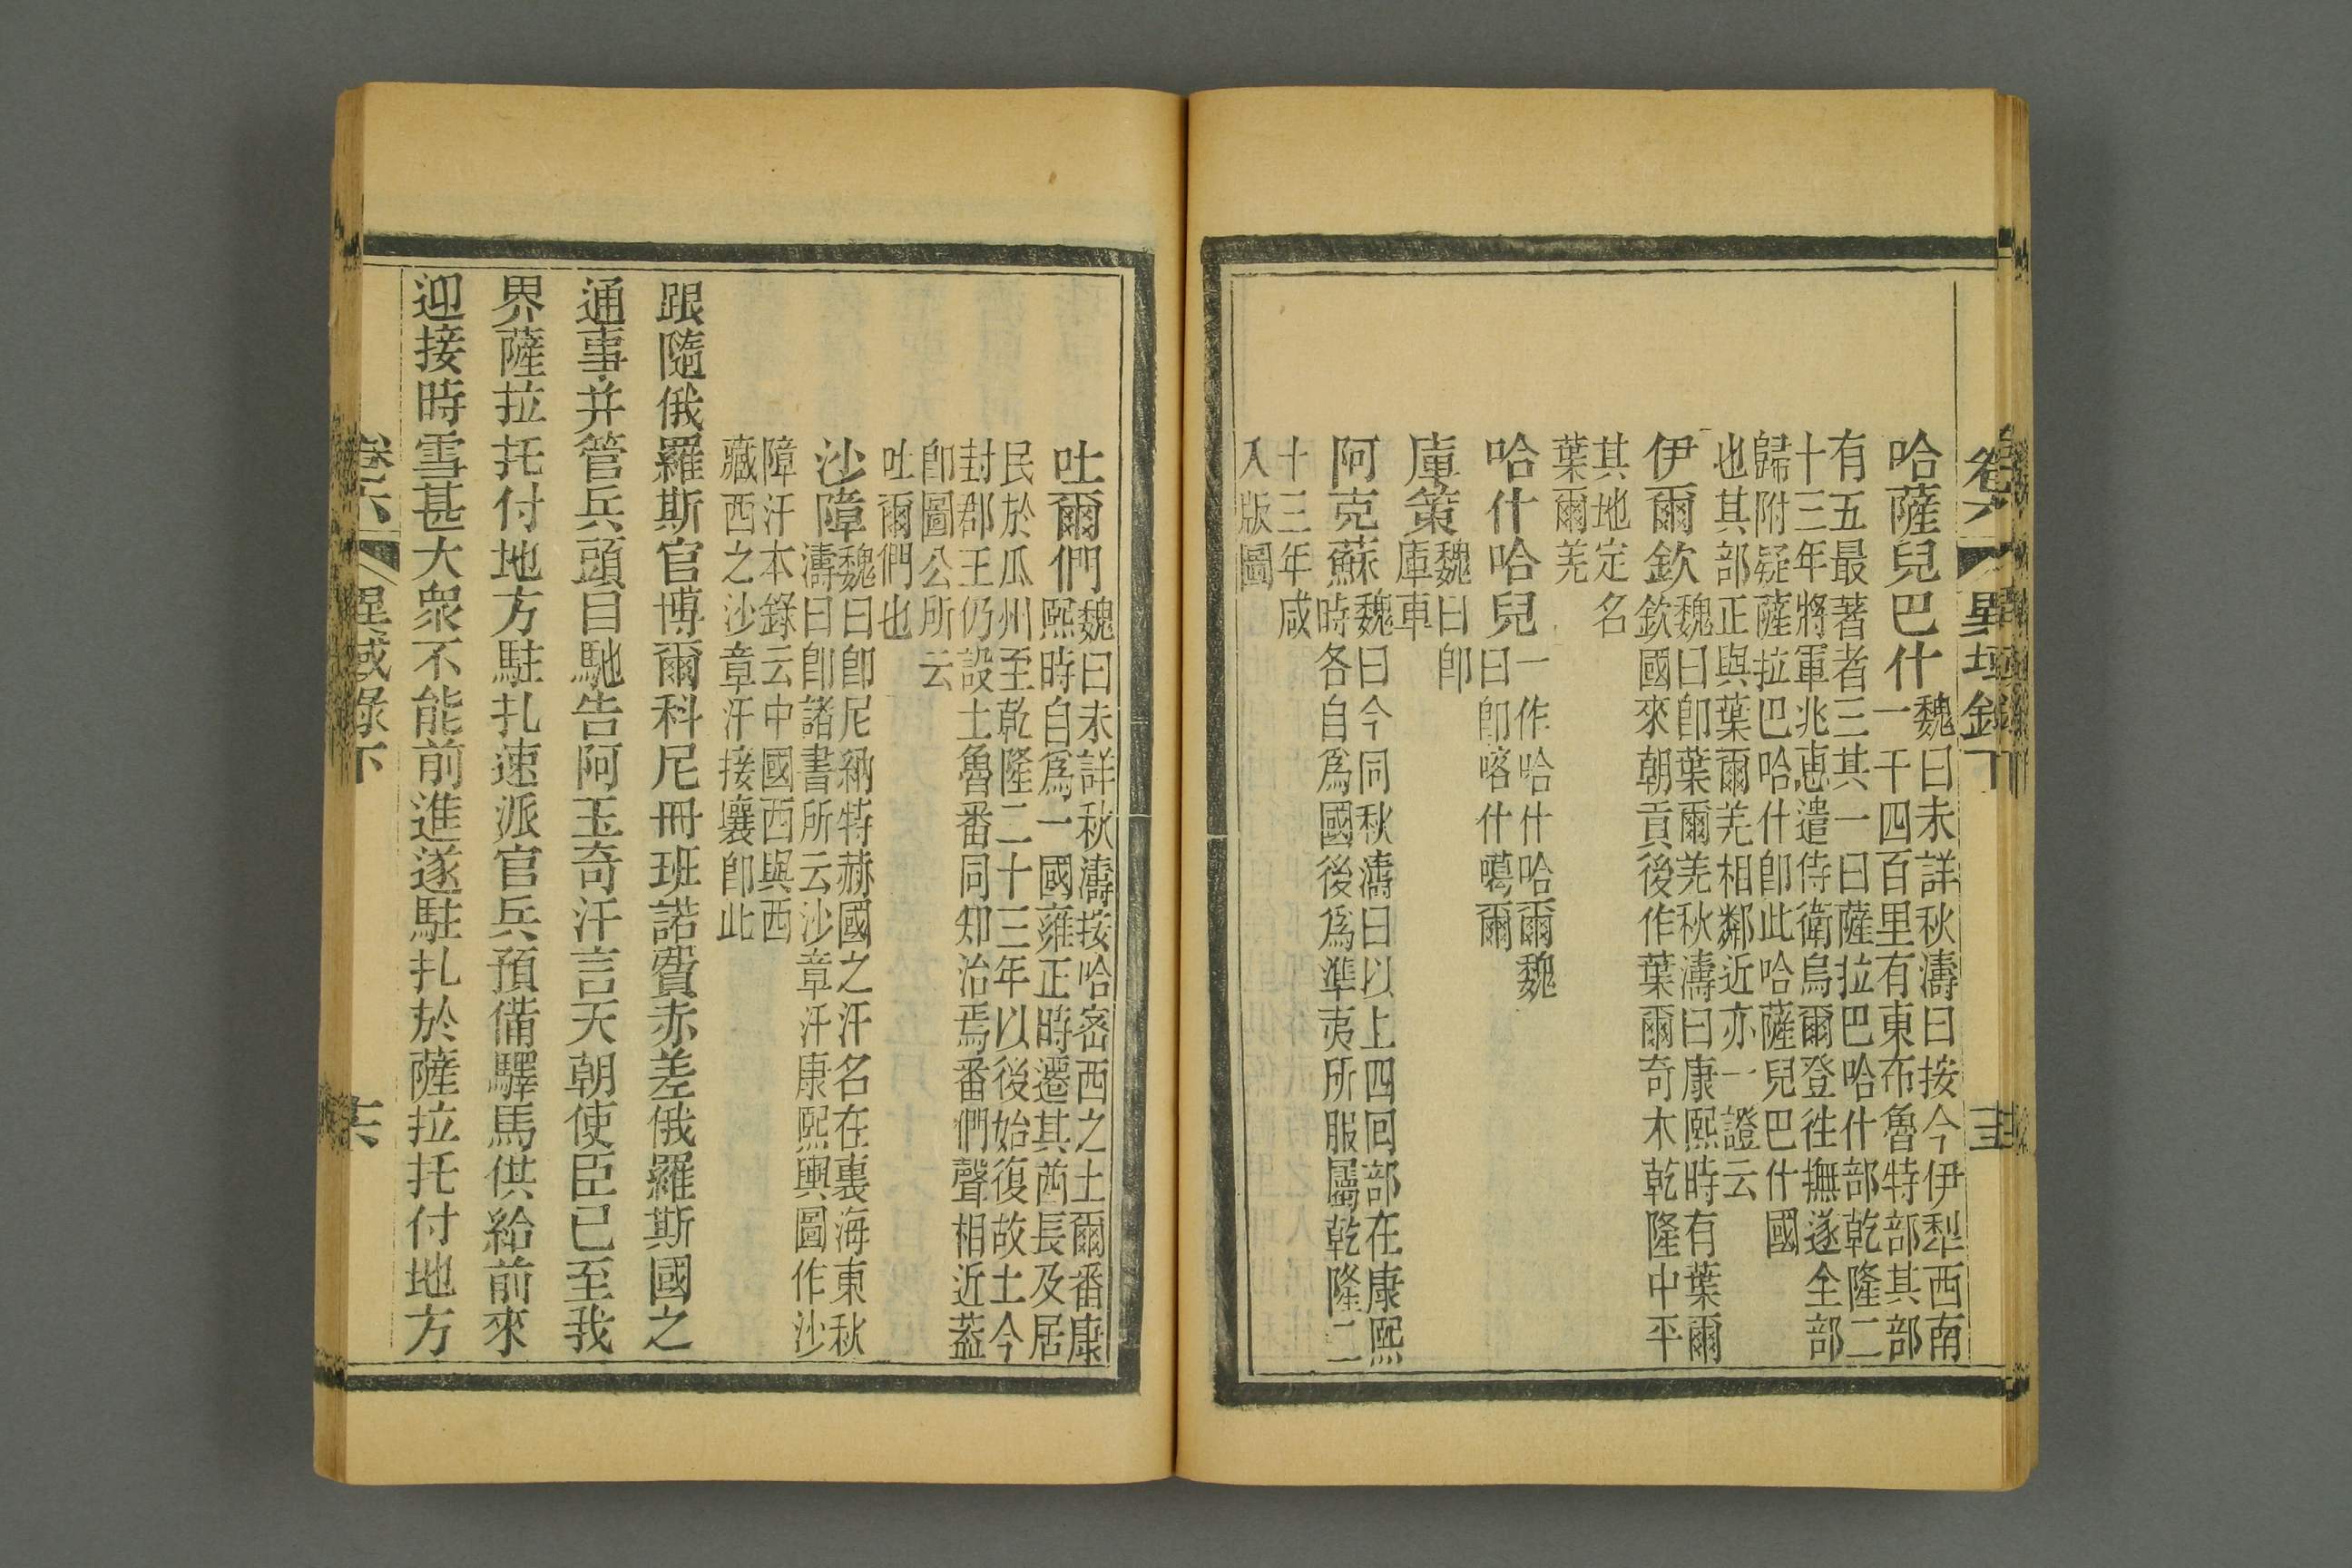 卷六 異域錄下
哈薩兒巴什魏曰未詳秋濤曰按今伊犁西南
一千四百里有東布魯特部其部
有五最著者三其一曰薩拉巴哈什部乾隆二
十三年將軍兆惠遣侍衛烏爾登徃撫遂全部
歸附疑薩拉巴哈什卽此哈薩兒巴什國
也其部正與葉爾羌相鄰近亦一證云
伊爾欽魏曰卽葉爾羌秋濤曰康熙時有葉爾
欽國來朝貢後作葉爾奇木乾隆中平
其地定名
葉爾羌
哈什哈兒一作哈什哈爾魏
曰卽喀什噶爾
庫策魏曰卽
庫車
阿克蘇魏曰今同秋濤曰以上四回部在康熙
時各自爲國後爲準夷所服屬乾隆二
十三年咸
入版圖
吐爾們魏曰未詳秋濤按哈密西之土爾番康
熙時自爲一國雍正時遷其酋長及居
民於瓜州至乾隆二十三年以後始復故土今
封郡王仍設土魯番同知治焉番們聲相近葢
卽圖公所云
吐爾們也
沙障魏曰卽尼納特赫國之汗名在裏海東秋
濤曰卽諸書所云沙章汗康熙輿圖作沙
障汗本錄云中國西與西
藏西之沙章汗接壤卽此
跟隨俄羅斯官博爾科尼冊班諾費赤差俄羅斯國之
通事并管兵頭目馳告阿玉奇汗言天朝使臣已至我
界薩拉托付地方駐扎速派官兵預備驛馬供給前來
迎接時雪甚大衆不能前進遂駐扎於薩拉托付地方
卷六 異域錄下 十六